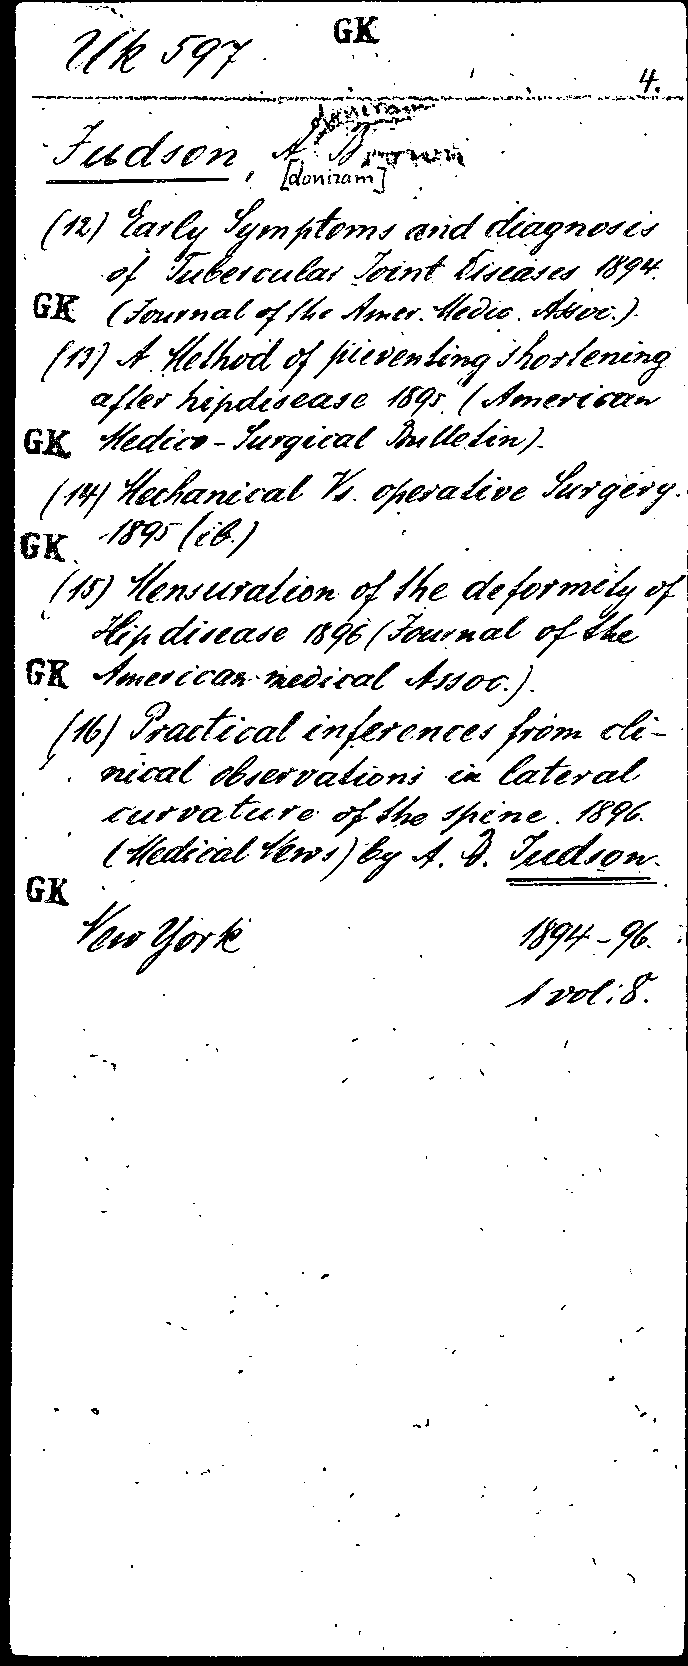 GK
Uk 597
4.
doniram
Judson, A. Brown
[doniram]
(12) Early Symptoms and diagnosis
of Tubercular Joint Diseases 1894.
GK (Journal of the Amer. Medic. Assoc.).
(13) A Method of preventing shortening
after hipdisease 1895. (American
GK Medico-Surgical Bulletin).
(14) Mechanical Vs. operative Surgery.
GK 1895 (ib.)
(15) Mensuration of the deformity of
Hipdisease 1896 (Journal of the
GK American medical Assoc.).
(16) Practical inferences from cli-
nical observations in lateral
curvature of the spine. 1896.
(Medical News) by A. B. Judson.
GK
New York 1894-96.
1 vol: 8.